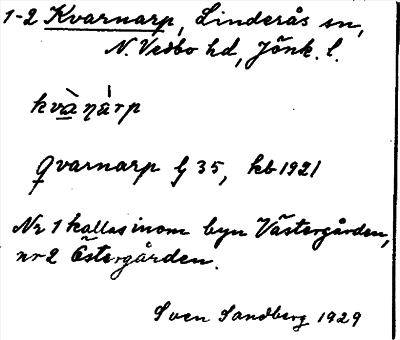 1-2 Kvarnarp, Linderås sn,
N. Vedbo hd, Jönk. l.
kvàṇárp
Qvarnarp G 35, kb 1921
Nr 1 kallas inom byn Västergården,
nr 2 Östergården.
Sven Sandberg 1929